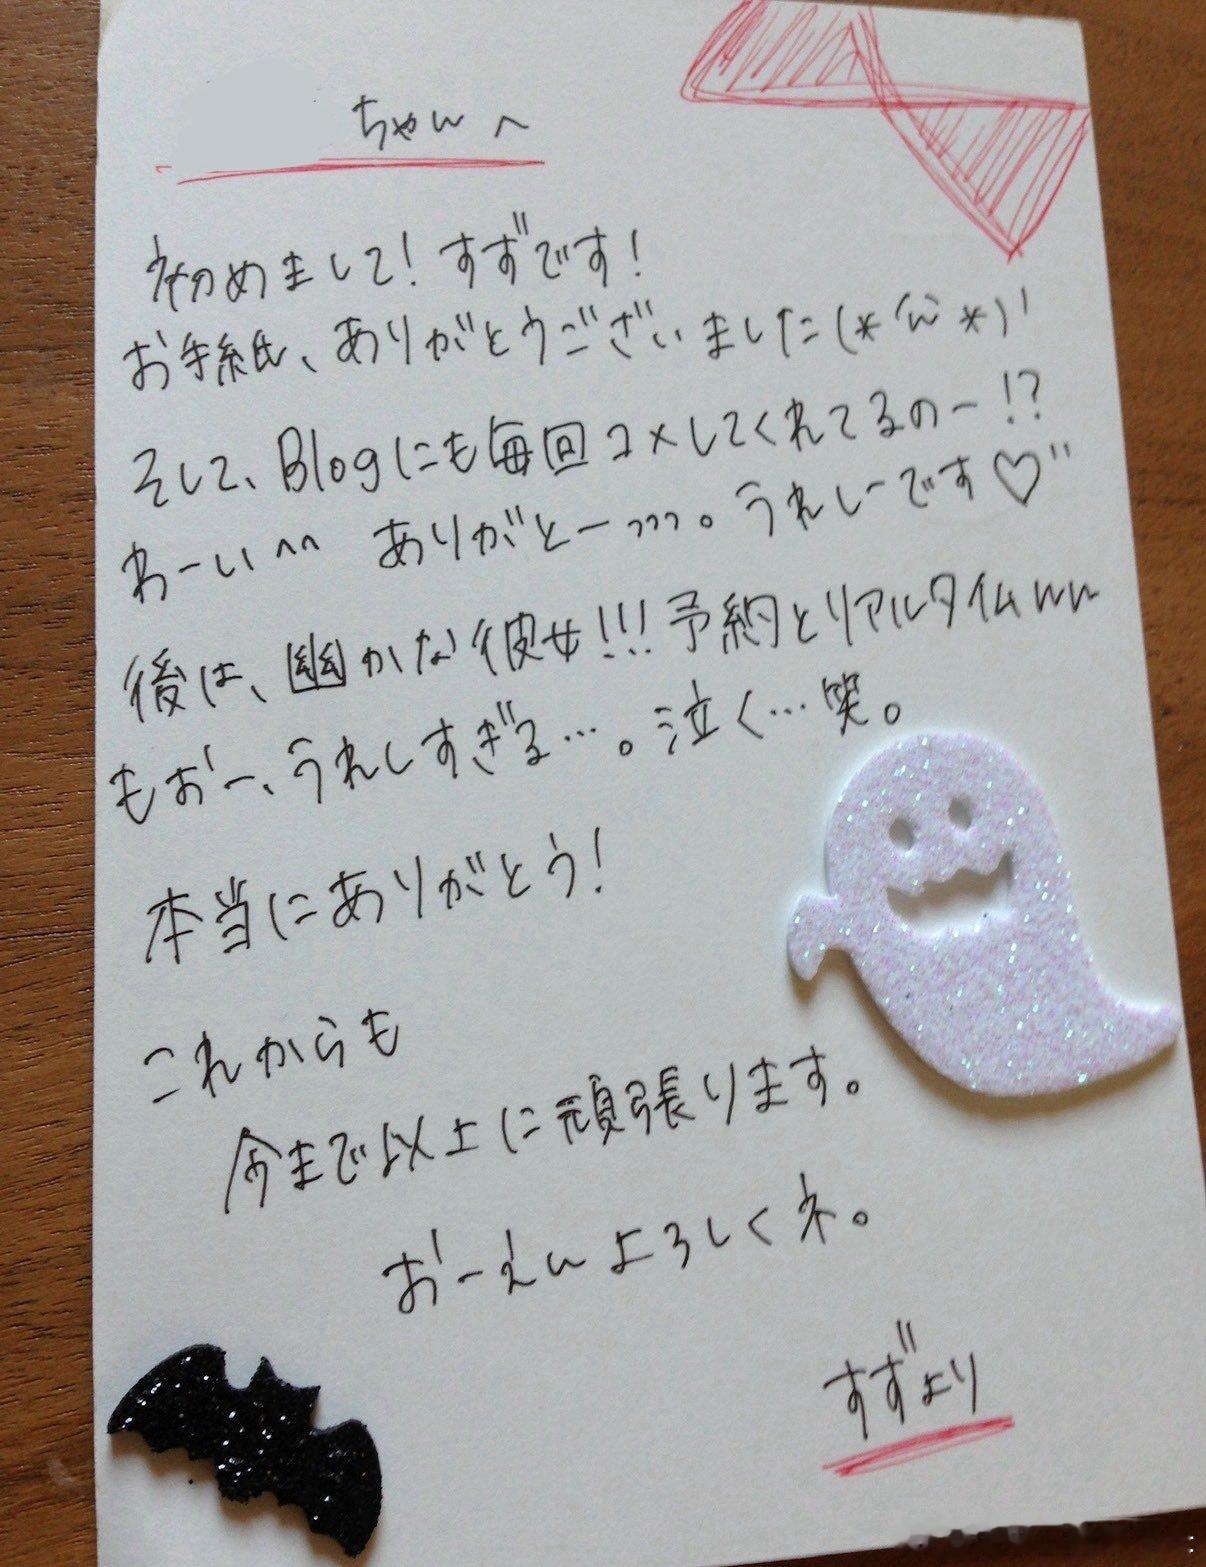 ちゃんへ
初めまして！すずです！
お手紙、ありがとうございました(*´ω`*)'
そして、Blogにも毎回コメしてくれてるのー!?
わーい^^ ありがとーっっっ。うれしーです♡"
後は、幽かな彼女!!!予約とリアルタイムww
もおー、うれしすぎる…。泣く…笑。
本当にありがとう！
これからも
今まで以上に頑張ります。
おーえんよろしくネ。
すずより